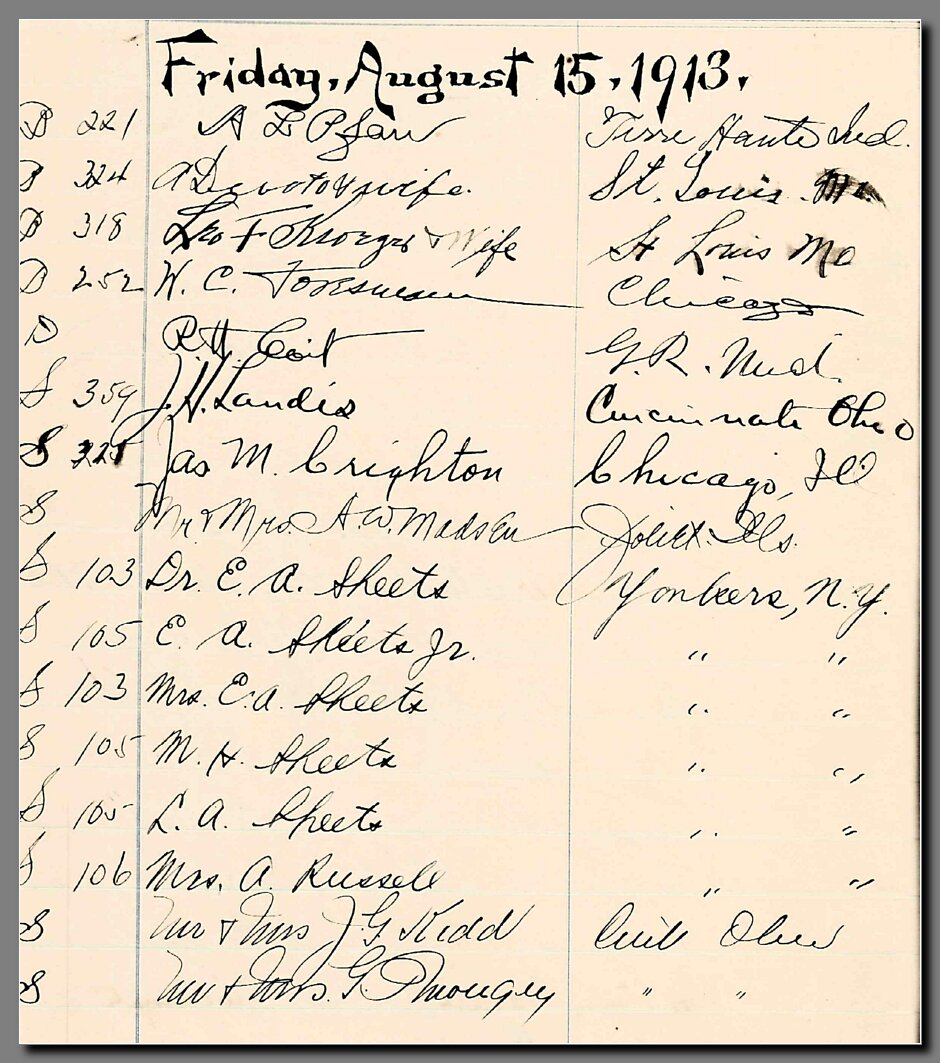 Friday, August 15, 1913.
D 221 A E Pfau Terre Haute Ind.
D 324 A Devoto & wife. St. Louis. Mo.
D 318 Leo F Kroeger & Wife St Louis Mo
D 252 W. C. Foresman Chicago
D R. H. Coit G. R. Mich.
S 359 J. H. Landis Cincinnati Ohio
S Jas M. Crighton Chicago, Ill
S Mr & Mrs. A. W. Madsen Joliet. Ills.
S 103 Dr. E. A. Sheets Yonkers, N. Y.
S 105 E. A. Sheets Jr. " "
S 103 Mrs. E. A. Sheets " "
S 105 M. H. Sheets " "
S 105 L. A. Sheets " "
S 106 Mrs. A. Russell " "
S Mr & Mrs J G Kidd Ohio
S Mr & Mrs. G. " "